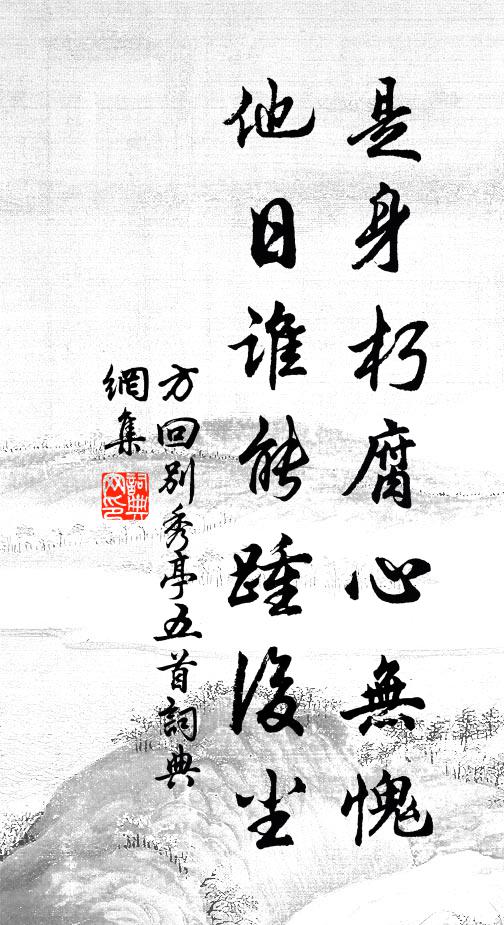 是身朽腐心無愧
他日誰能踵後尘
方回别秀亭五首詞典
網集
詞典
网印